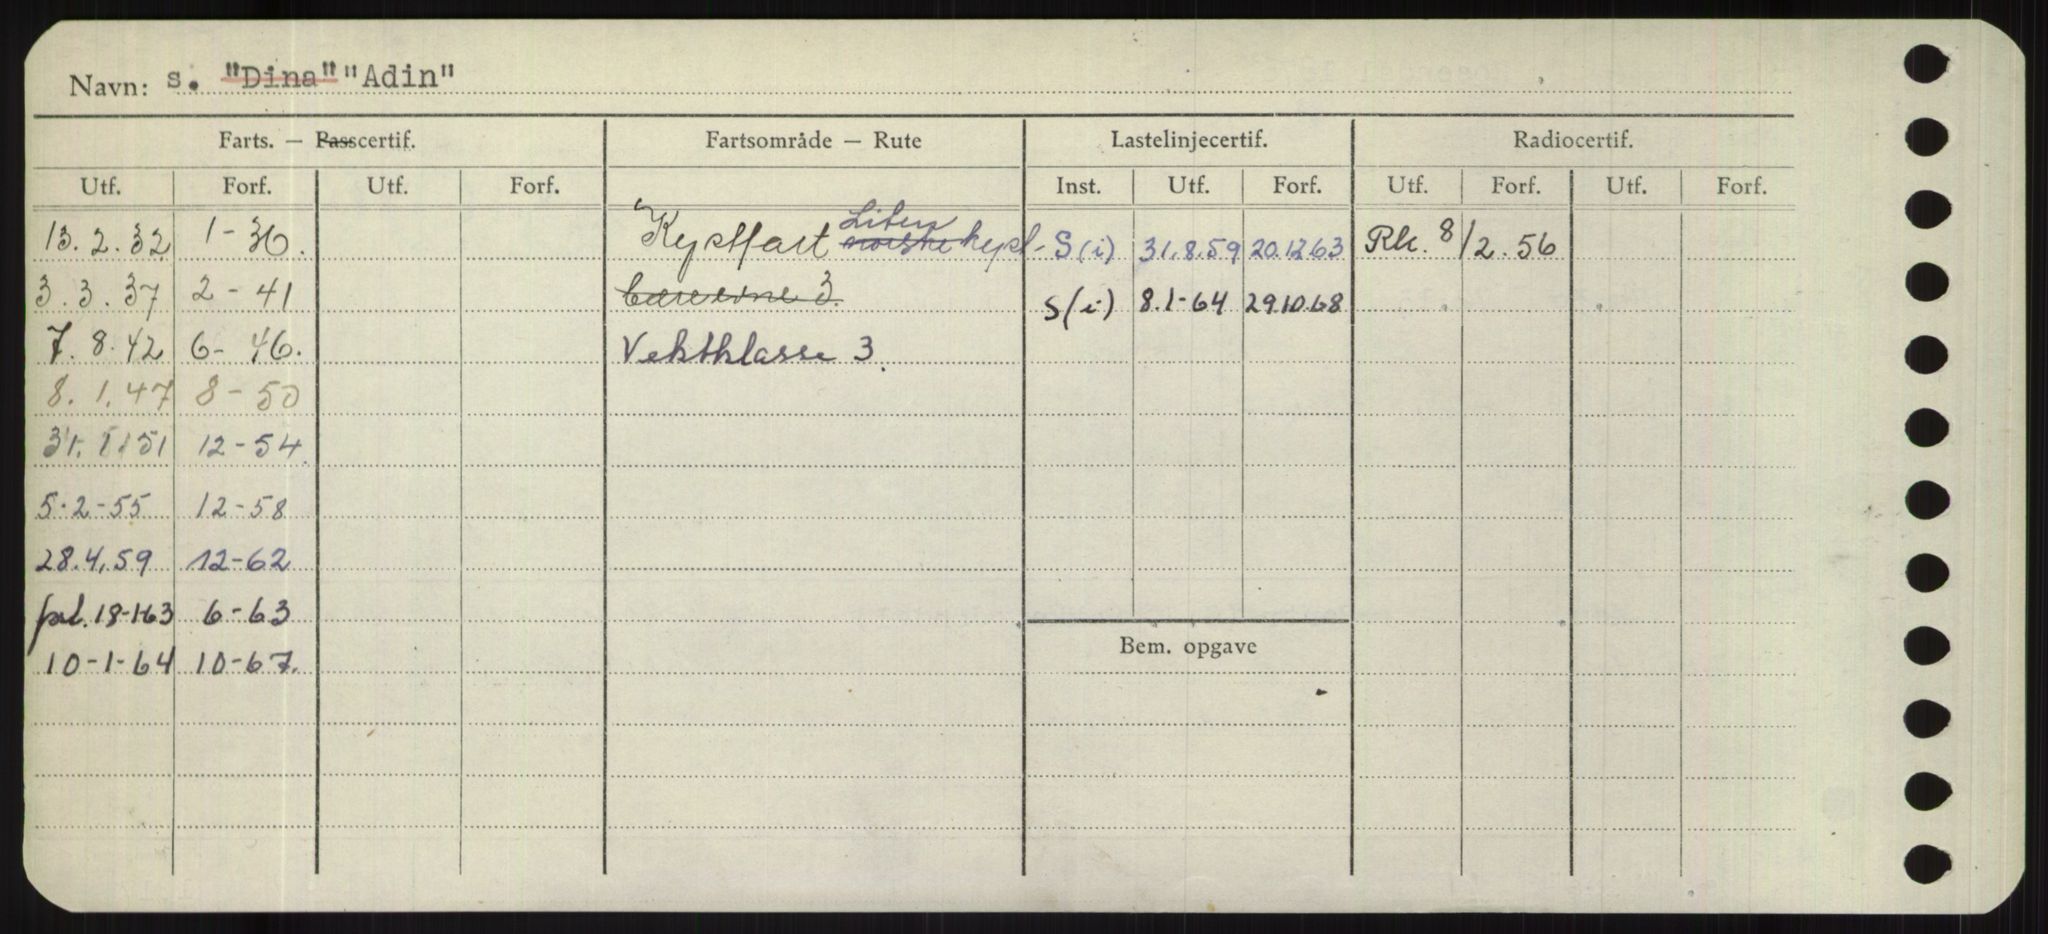 Navn: s. "Dina" "Adin"
Farts. — Passcertif. Fartsområde — Rute Lastelinjecertif. Radiocertif.
Utf. Forf. Utf. Forf. Inst. Utf. Forf. Utf. Forf. Utf. Forf.
Liten
13.2.32 1-36. Kystfart norske kyst- S(i) 31.8.59 20.12.63 Rk. 8/2.56
3.3.37 2-41 bæreevne 3. S(i) 8.1-64 29.10.68
7.8.42 6-46. Vektklasse 3.
8.1.47 8-50
31.1.51 12-54
5.2-55 12-58
28.4.59 12-62
prl. 18-1-63 6-63
Bem. opgave
10-1-64 10-67.